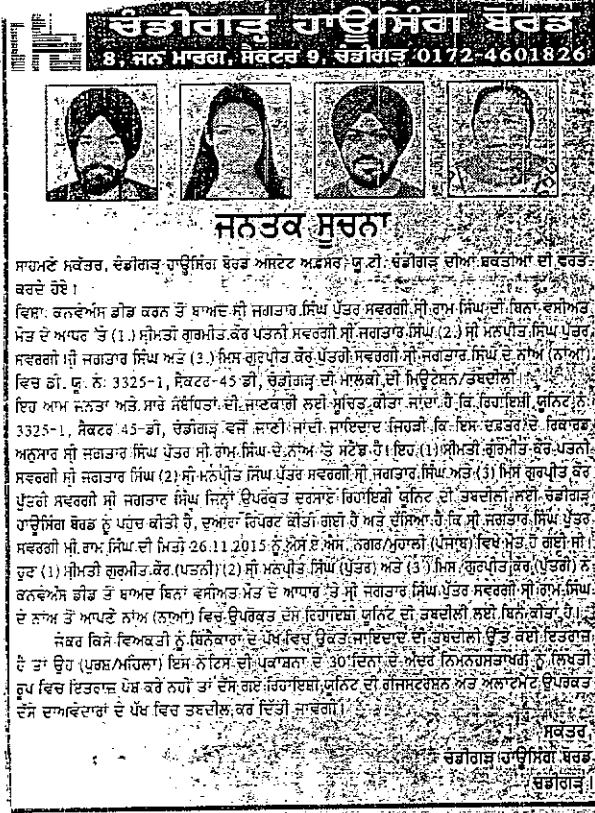 ਚੰਡੀਗੜ੍ਹ ਹਾਊਸਿੰਗ ਬੋਰਡ
8, ਜਨ ਮਾਰਗ, ਸੈਕਟਰ 9, ਚੰਡੀਗੜ੍ਹ 0172-4601826
ਜਨਤਕ ਸੂਚਨਾ
ਸਾਹਮਣੇ ਸਕੱਤਰ, ਚੰਡੀਗੜ੍ਹ ਹਾਊਸਿੰਗ ਬੋਰਡ ਅਸਟੇਟ ਅਫ਼ਸਰ, ਯੂ.ਟੀ. ਚੰਡੀਗੜ੍ਹ ਦੀਆਂ ਸ਼ਕਤੀਆਂ ਦੀ ਵਰਤੋਂ
ਕਰਦੇ ਹੋਏ।
ਵਿਸ਼ਾ: ਕਨਵੇਐਂਸ ਡੀਡ ਕਰਨ ਤੋਂ ਬਾਅਦ ਸ੍ਰੀ ਜਗਤਾਰ ਸਿੰਘ ਪੁੱਤਰ ਸਵਰਗੀ ਸ੍ਰੀ ਰਾਮ ਸਿੰਘ ਦੀ ਬਿਨਾਂ ਵਸੀਅਤ
ਮੌਤ ਦੇ ਆਧਾਰ 'ਤੇ (1.) ਸ੍ਰੀਮਤੀ ਗੁਰਮੀਤ ਕੌਰ ਪਤਨੀ ਸਵਰਗੀ ਸ੍ਰੀ ਜਗਤਾਰ ਸਿੰਘ (2.) ਸ੍ਰੀ ਮਨਪੀਤ ਸਿੰਘ ਪੁੱਤਰ
ਸਵਰਗੀ ਸ੍ਰੀ ਜਗਤਾਰ ਸਿੰਘ ਅਤੇ (3.) ਮਿਸ ਗੁਰਪੀਤ ਕੌਰ ਪੁੱਤਰੀ ਸਵਰਗੀ ਸ੍ਰੀ ਜਗਤਾਰ ਸਿੰਘ ਦੇ ਨਾਂਅ (ਨਾਆਂ)
ਵਿਚ ਡੀ. ਯੂ. ਨੰ: 3325-1, ਸੈਕਟਰ-45 ਡੀ, ਚੰਡੀਗੜ੍ਹ ਦੀ ਮਾਲਕੀ ਦੀ ਮਿਊਟੇਸ਼ਨ/ਤਬਦੀਲੀ।
ਇਹ ਆਮ ਜਨਤਾ ਅਤੇ ਸਾਰੇ ਸੰਬੰਧਿਤਾਂ ਦੀ ਜਾਣਕਾਰੀ ਲਈ ਸੂਚਿਤ ਕੀਤਾ ਜਾਂਦਾ ਹੈ ਕਿ ਰਿਹਾਇਸ਼ੀ ਯੂਨਿਟ ਨੰ.
3325-1, ਸੈਕਟਰ 45-ਡੀ, ਚੰਡੀਗੜ੍ਹ ਵਜੋਂ ਜਾਣੀ ਜਾਂਦੀ ਜਾਇਦਾਦ ਜਿਹੜੀ ਕਿ ਇਸ ਦਫ਼ਤਰ ਦੇ ਰਿਕਾਰਡ
ਅਨੁਸਾਰ ਸ੍ਰੀ ਜਗਤਾਰ ਸਿੰਘ ਪੁੱਤਰ ਸ੍ਰੀ ਰਾਮ ਸਿੰਘ ਦੇ ਨਾਂਅ 'ਤੇ ਸਟੈਂਡ ਹੈ। ਇਹ (1) ਸ੍ਰੀਮਤੀ ਗੁਰਮੀਤ ਕੌਰ ਪਤਨੀ
ਸਵਰਗੀ ਸ੍ਰੀ ਜਗਤਾਰ ਸਿੰਘ (2) ਸ੍ਰੀ ਮਨਪੀਤ ਸਿੰਘ ਪੁੱਤਰ ਸਵਰਗੀ ਸ੍ਰੀ ਜਗਤਾਰ ਸਿੰਘ ਅਤੇ (3) ਮਿਸ ਗੁਰਪੀਤ ਕੌਰ
ਪੁੱਤਰੀ ਸਵਰਗੀ ਸ੍ਰੀ ਜਗਤਾਰ ਸਿੰਘ ਜਿਨ੍ਹਾਂ ਉਪਰੋਕਤ ਦਰਸਾਏ ਰਿਹਾਇਸ਼ੀ ਯੂਨਿਟ ਦੀ ਤਬਦੀਲੀ ਲਈ ਚੰਡੀਗੜ੍ਹ
ਹਾਊਸਿੰਗ ਬੋਰਡ ਨੂੰ ਪਹੁੰਚ ਕੀਤੀ ਹੈ, ਦੁਆਰਾ ਰਿਪੋਰਟ ਕੀਤੀ ਗਈ ਹੈ ਅਤੇ ਦੱਸਿਆ ਹੈ ਕਿ ਸ੍ਰੀ ਜਗਤਾਰ ਸਿੰਘ ਪੁੱਤਰ
ਸਵਰਗੀ ਸ੍ਰੀ ਰਾਮ ਸਿੰਘ ਦੀ ਮਿਤੀ 26.11.2015 ਨੂੰ ਐਸ.ਏ.ਐਸ. ਨਗਰ/ਮੁਹਾਲੀ (ਪੰਜਾਬ) ਵਿਖੇ ਮੌਤ ਹੋ ਗਈ ਸੀ।
ਹੁਣ (1) ਸ੍ਰੀਮਤੀ ਗੁਰਮੀਤ ਕੌਰ (ਪਤਨੀ) (2) ਸ੍ਰੀ ਮਨਪੀਤ ਸਿੰਘ (ਪੁੱਤਰ) ਅਤੇ (3) ਮਿਸ ਗੁਰਪੀਤ ਕੌਰ (ਪੁੱਤਰੀ) ਨੇ
ਕਨਵੇਐਂਸ ਡੀਡ ਤੋਂ ਬਾਅਦ ਬਿਨਾਂ ਵਸੀਅਤ ਮੌਤ ਦੇ ਆਧਾਰ 'ਤੇ ਸ੍ਰੀ ਜਗਤਾਰ ਸਿੰਘ ਪੁੱਤਰ ਸਵਰਗੀ ਸ੍ਰੀ ਰਾਮ ਸਿੰਘ
ਦੇ ਨਾਂਅ ਤੋਂ ਆਪਣੇ ਨਾਂਅ (ਨਾਆਂ) ਵਿਚ ਉਪਰੋਕਤ ਦੱਸੇ ਰਿਹਾਇਸ਼ੀ ਯੂਨਿਟ ਦੀ ਤਬਦੀਲੀ ਲਈ ਬਿਨੈ ਕੀਤਾ ਹੈ।
ਜੇਕਰ ਕਿਸੇ ਵਿਅਕਤੀ ਨੂੰ ਬਿਨੈਕਾਰਾਂ ਦੇ ਪੱਖ ਵਿਚ ਉਕਤ ਜਾਇਦਾਦ ਦੀ ਤਬਦੀਲੀ ਉੱਤੇ ਕੋਈ ਇਤਰਾਜ਼
ਹੈ ਤਾਂ ਉਹ (ਪੁਰਸ਼/ਮਹਿਲਾ) ਇਸ ਨੋਟਿਸ ਦੀ ਪ੍ਰਕਾਸ਼ਨਾ ਦੇ 30 ਦਿਨਾਂ ਦੇ ਅੰਦਰ ਨਿਮਨਹਸਤਾਖਰੀ ਨੂੰ ਲਿਖਤੀ
ਰੂਪ ਵਿਚ ਇਤਰਾਜ਼ ਪੇਸ਼ ਕਰੇ ਨਹੀਂ ਤਾਂ ਦੱਸੇ ਗਏ ਰਿਹਾਇਸ਼ੀ ਯੂਨਿਟ ਦੀ ਰਜਿਸਟਰੇਸ਼ਨ ਅਤੇ ਅਲਾਟਮੈਂਟ ਉਪਰੋਕਤ
ਦੱਸੇ ਦਾਅਵੇਦਾਰਾਂ ਦੇ ਪੱਖ ਵਿਚ ਤਬਦੀਲ ਕਰ ਦਿੱਤੀ ਜਾਵੇਗੀ।
ਸਕੱਤਰ,
ਚੰਡੀਗੜ੍ਹ ਹਾਊਸਿੰਗ ਬੋਰਡ
ਚੰਡੀਗੜ੍ਹ।